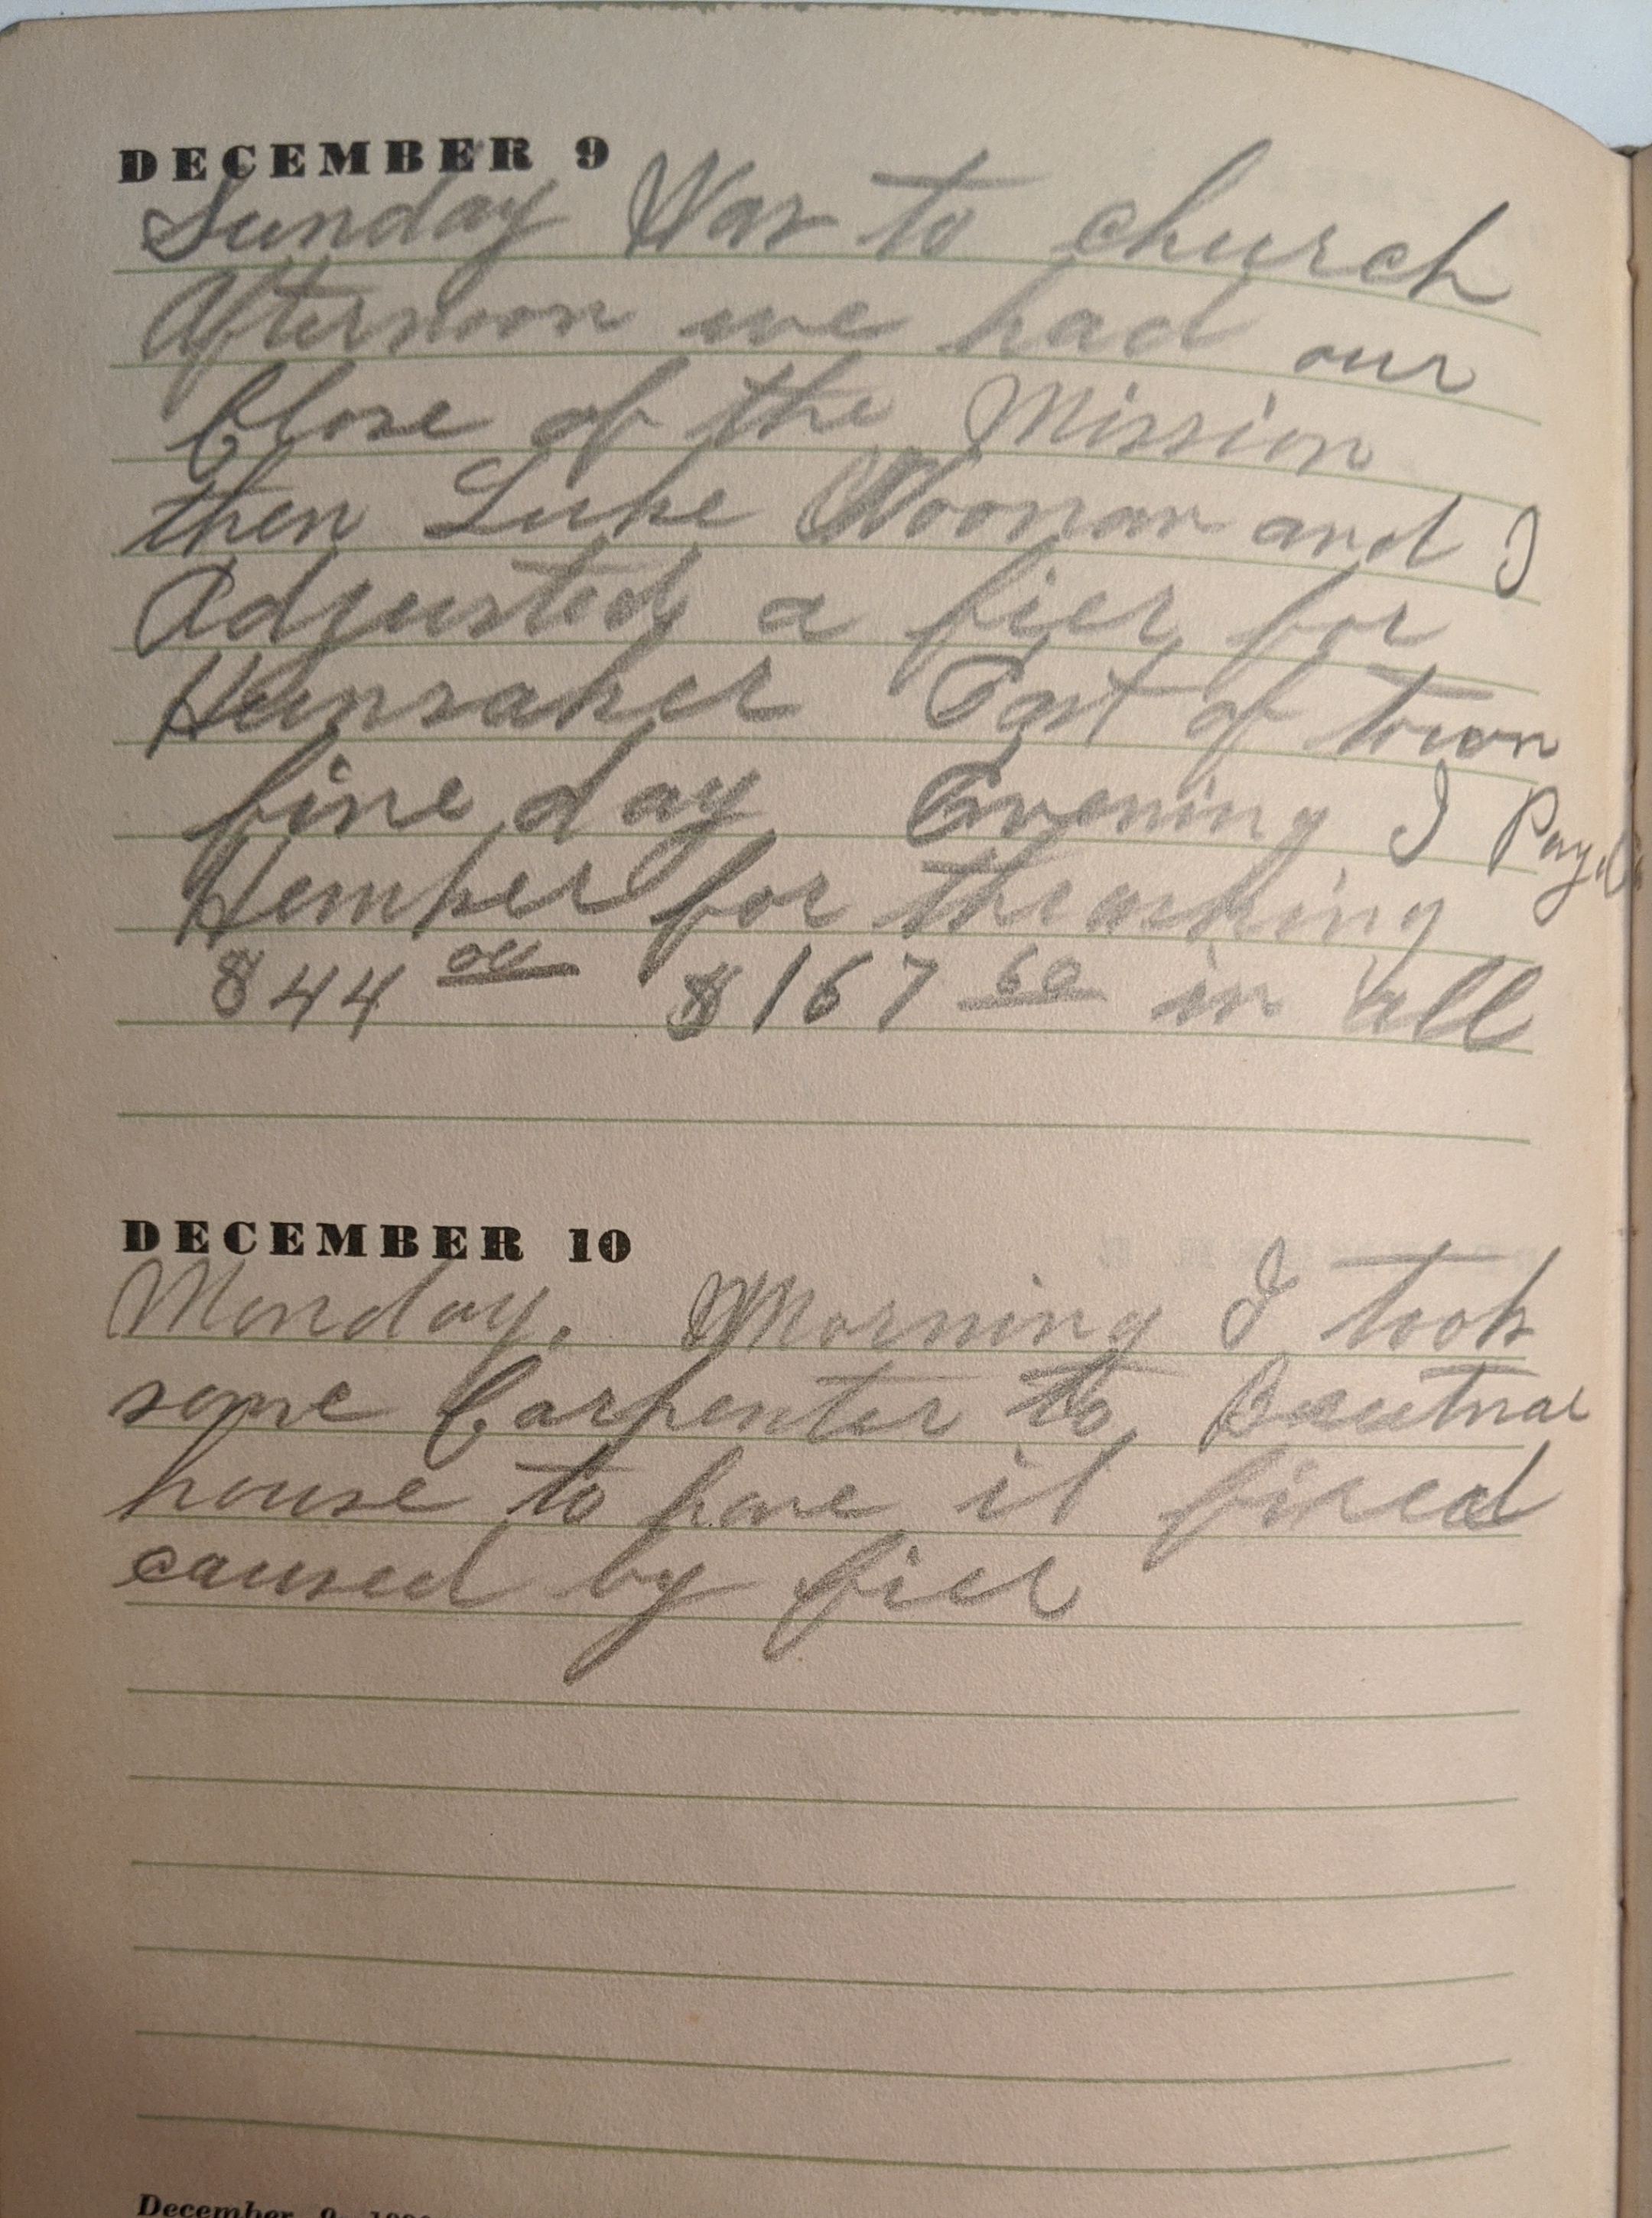 DECEMBER 9
Sunday Was to church
Afternoon we had our
Close of the Mission
then Luke Noonan and I
Adjusted a fier for
Hunsaker East of town
fine day Evening I Payd
Hemker for thrashing
$44 00 $167 60 in all
DECEMBER 10
Monday. Morning I took
some Carpenter to
house to have it fixed
caused by fier
December 9,